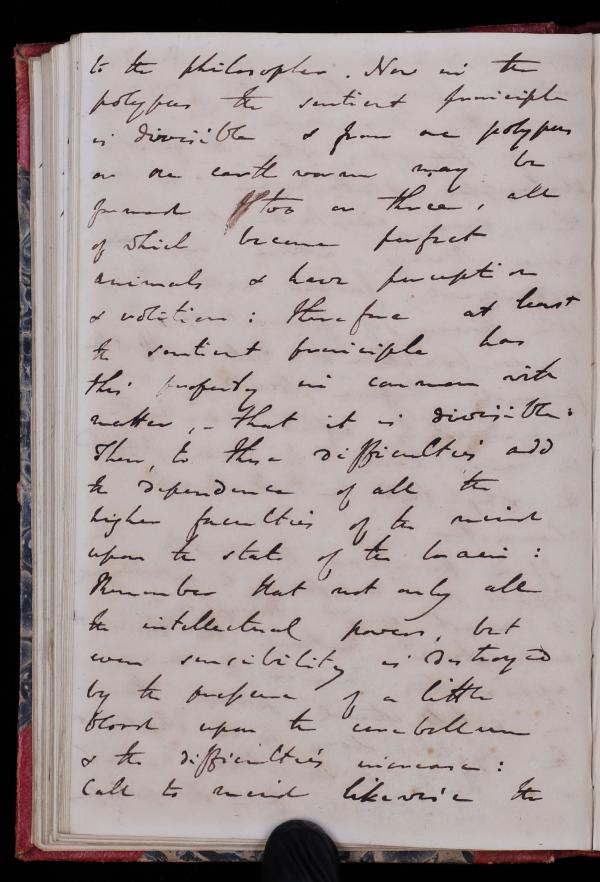 to the philosopher. Now in the
polypus the sentient principle
is divisible & from one polypus
or one earthworm may be
formed two or three, all
of which become perfect
animals & have perception
& volition: therefore at least
the sentient principle has
this property in common with
matter, - that it is divisible:
Then to these difficulties add
the dependence of all the
higher faculties of the mind
upon the state of the brain:
Remember that not only all
the intellectual powers, but
even sensibility is destroyed
by the pressure of a little
blood upon the cerebellum
& the difficulties increase:
Call to mind likewise the